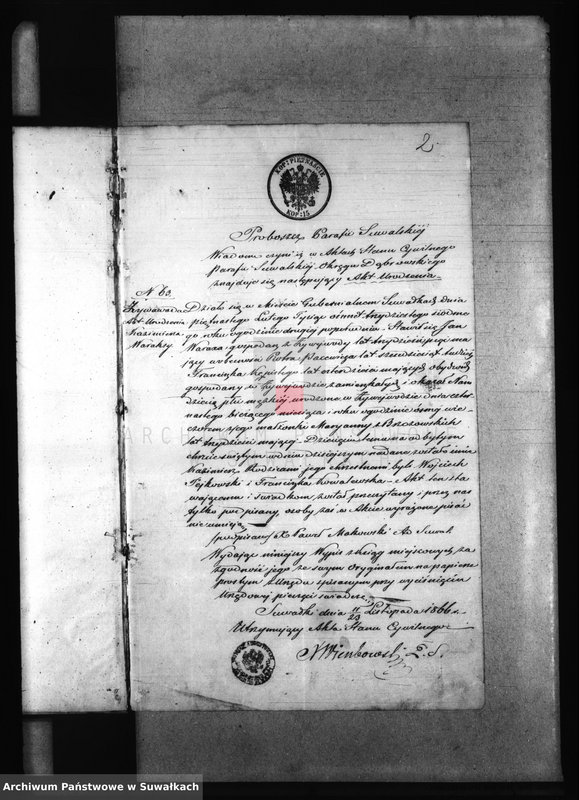 2
KOP: PIĘTNAŚCIE
KOP: 15
Proboszcz Parafii Suwalskiéj
Wiadomo czyni iż w Aktach Stanu Cywilnego
Parafii Suwalskiéj Okręgu Dąbrowskiego
znajduje się następujący Akt Urodzenia
N 63.
Żywawoda
Akt Urodzenia
Kazimierza
Waraksy
Działo się w Mieście Gubernialnem Suwałkach dnia
piętnastego Lutego Tysiąc ośmset trzydziestego siódme
go roku o godzinie drugiéj popołudniu. Stawił się Jan
Waraxa gospodarz z Żywejwody lat trzydzieści ma
jący w obecności Piotra lat sześćdziesiąt, tudzież
Franciszka lat czterdzieści mających obydwóch
gospodarzy w Żywejwodzie zamieszkałych i okazał Nam
Dziecię płci męzkiéj urodzone w Żywejwodzie dnia czter
nastego bieżącego miesiąca i roku o godzinie ósmej wie
czorem z jego małżonki Maryanny z Brzozowskich
lat trzydzieści mającéj. Dziecięciu temu na odbytym
chrzcie świętym w dniu dzisiejszym nadane zostało imie
Kazimierz Rodzicami jego chrzestnemi byli Wojciech
Fejkowski i Franciszka Kowalewska – Akt ten sta
wającemu i świadkom został przeczytany i przez nas
tylko podpisany, osoby zaś w Akcie wyrażone pisać
nie umieją
(podpisano) X. Paweł Makowski
Wydając niniejszy Wypis z ksiąg miejscowych za
zgodność jego ze swym Oryginałem na papierze
prostym z Urzędu spisanym przy wyciśnięciu
Urzędowéj pieczęci świadczę.
Suwałki dnia 11/23 Listopada 1866 r.
Utrzymujący Akta Stanu Cywilnego
Archiwum Państwowe w Suwałkach